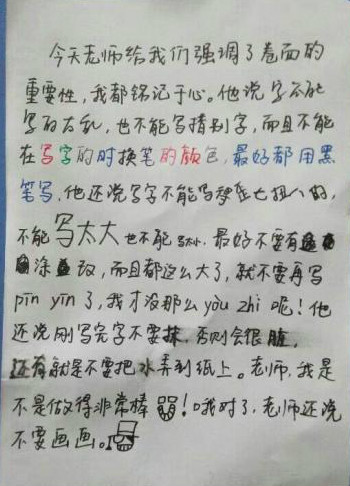 今天老师给我们强调了卷面的
重要性，我都铭记于心。他说字不能
写的太乱，也不能写错别字，而且不能
在写字的时换笔的颜色，最好都用黑
笔写，他还说写字不能写歪七扭八的，
不能写太大也不能写太小，最好不要有
涂改，而且都这么大了，就不要再写
pīn yīn了，我才没那么yòu zhi呢！他
还说刚写完字不要抹，否则会很脏，
还有就是不要把水弄到纸上。老师，我是
不是做得非常棒！哦对了，老师还说
不要画画。